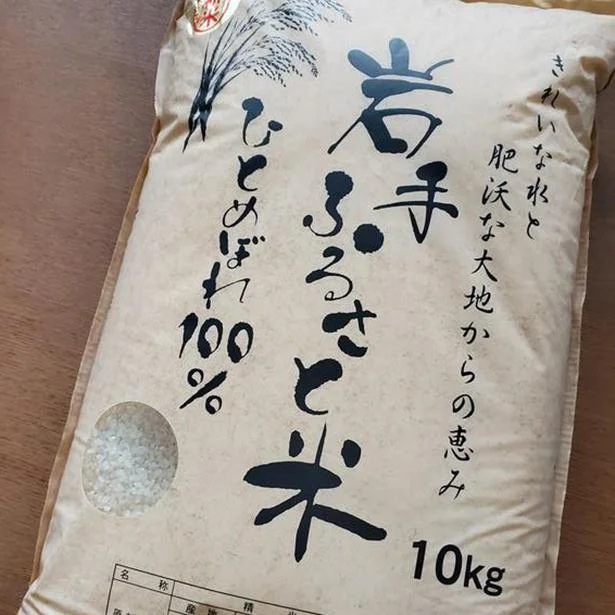 きれいな水と
肥沃な大地からの恵み
岩手
ふるさと米
ひとめぼれ
100%
10kg
名 称
精
産 地